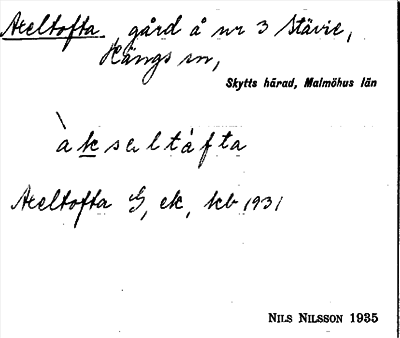 Axeltofta, gård å nr 3 Stävie,
Hängs sn,
Skytts härad, Malmöhus län
àkseltáfta
Axeltofta G, ek, kb 1931
NILS NILSSON 1935